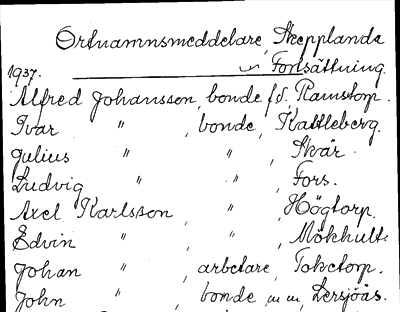 Ortnamnsmeddelare, Skepplanda
Fortsättning.
1937.
Alfred Johansson, bonde f.d., Ramstorp.
Ivar " , bonde, Kattleberg.
Julius " " , Skår.
Ludvig " , " , Fors.
Axel Karlsson, " , Högtorp.
Edvin " , " , Mökhult.
Johan " , arbetare, Toketorp.
John " , bonde, m m, Dersjöås.